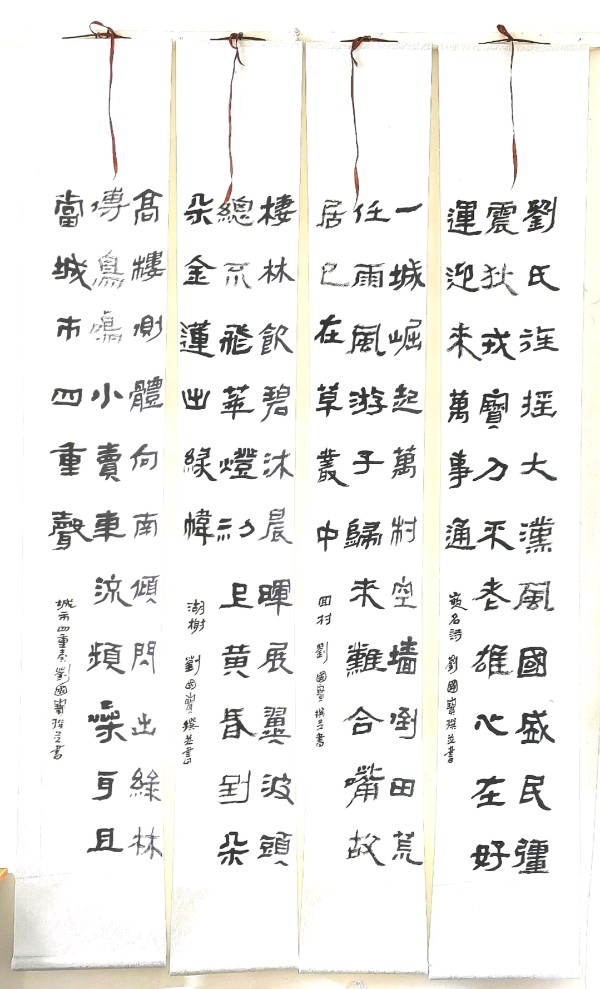 劉氏旌揺大漢風國盛民彊
震狄戎寶刀不老雄心在好
運迎来萬事通
嵌名詩 劉國寶撰並書
一城崛起萬村空墻倒田荒
任雨風游子歸来難合嘴故
居已在草叢中
回村 劉國寶撰並書
棲林飲碧沐晨暉展翼波頭
總不飛華燈初上黄昏到朵
朵金蓮出綠幃
湖榭 劉國寶撰並書
高樓側體向南傾閃出綠林
傳鳥鳴小賣東流頻噪耳且
當城市四重聲
城市四重奏 劉國寶撰並書